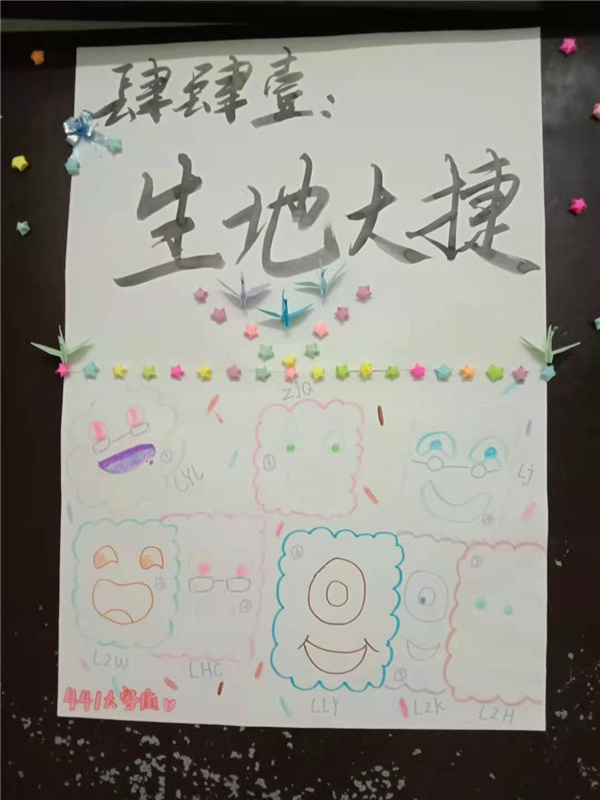 肆肆壹：
生地大捷
ZJQ
LYL
Lj
LZW
LHC
LLY
LZK
LZH
441大